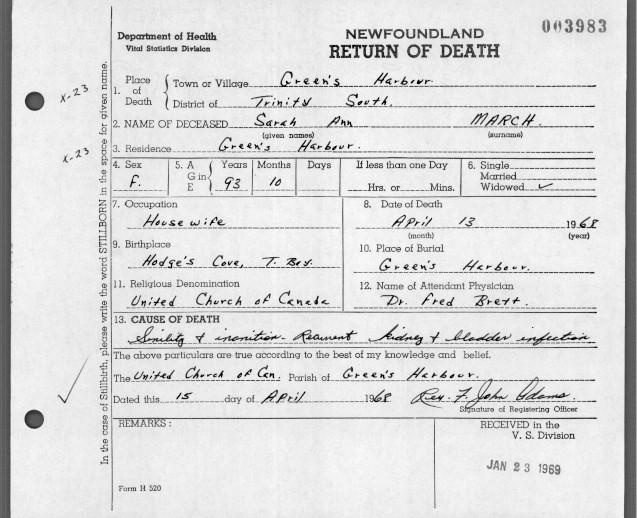 003983
Department of Health
Vital Statistics Division
NEWFOUNDLAND
RETURN OF DEATH
x-23
x-23
In the case of Stillbirth, please write the word STILLBORN in the space for given name.
1. Place of Death { Town or Village Green's Harbour.
District of Trinity South.
2. NAME OF DECEASED Sarah Ann MARCH.
(given names) (surname)
3. Residence Green's Harbour.
4. Sex F.
5. AGE { Years 93 Months 10 Days
If less than one Day
Hrs. or Mins.
6. Single
Married
Widowed ✓
7. Occupation
Housewife
8. Date of Death
April 13 1968
(month) (year)
9. Birthplace
Hodge's Cove, T. Bay.
10. Place of Burial
Green's Harbour.
11. Religious Denomination
United Church of Canada
12. Name of Attendant Physician
Dr. Fred Brett.
13. CAUSE OF DEATH
Sinility & inanition. Recurrent kidney & bladder infection
The above particulars are true according to the best of my knowledge and belief.
The United Church of Can. Parish of Green's Harbour.
Dated this 15 day of April 1968 Rev. F. John Adams.
Signature of Registering Officer
REMARKS:
RECEIVED in the
V. S. Division
JAN 23 1969
Form H 520